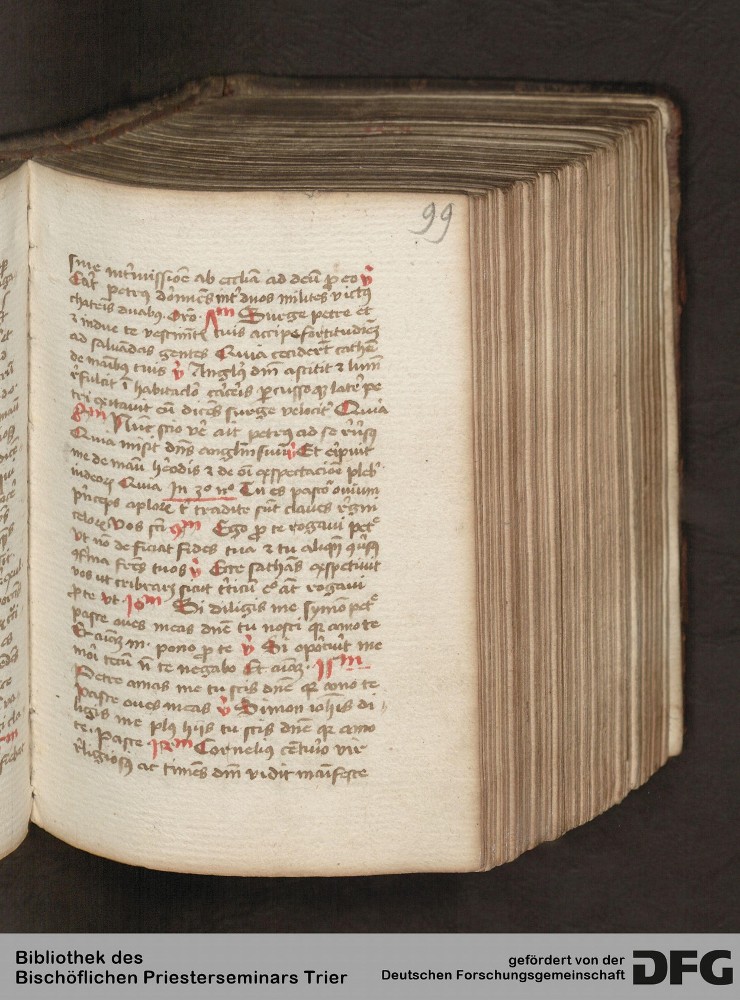 99
sine intermissione ab ecclia ad deu pro eo v
Erat petrus dormiens int duos milites victus
cathenis duabus. Oro. Am Surge petre et
z indue te vestimetis tuis accipe fortitudiez
ad saluandas gentes Quia ceciderut cathen
de manibus tuis v Anglus dni astitit z lum
refulsit i habitaclo carceris percussoqz latere pe
tri excitauit eu dicens surge velociter Quia
8m Nunc scio vere ait petrus ad se reusus
Quia misit dns anglum suum v Et eripuit
me de manu herodis z de oi exspectacione plebis
iudeorz Quia In 3o no Tu es pastor ouium
princeps aplorz t tradite sut claues regni
celorz Vos sti 9m Ego pro te rogaui petre
vt no deficiat fides tua z tu aliqn quersus
confirma fres tuos v Ecce sathanas expetiuit
vos vt cribraret sicut triticu ego at rogaui
pro te Vt 10m Si diligis me symon petre
pasce oues meas dne tu nosti qr amo te
Et aiam m pono pro te v Si oportuerit me
mori tecu n te negabo Et aiam. 11m
Petre amas me tu scis dne qr amo te
pasce oues meas v Simon iohis di
ligis me plus hiis tu scis dne qr amo
te. Pasce 12m Cornelius centurio vir
religiosus ac timens dm vidit manifeste
Bibliothek des
Bischöflichen Priesterseminars Trier
gefördert von der
Deutschen Forschungsgemeinschaft
DFG